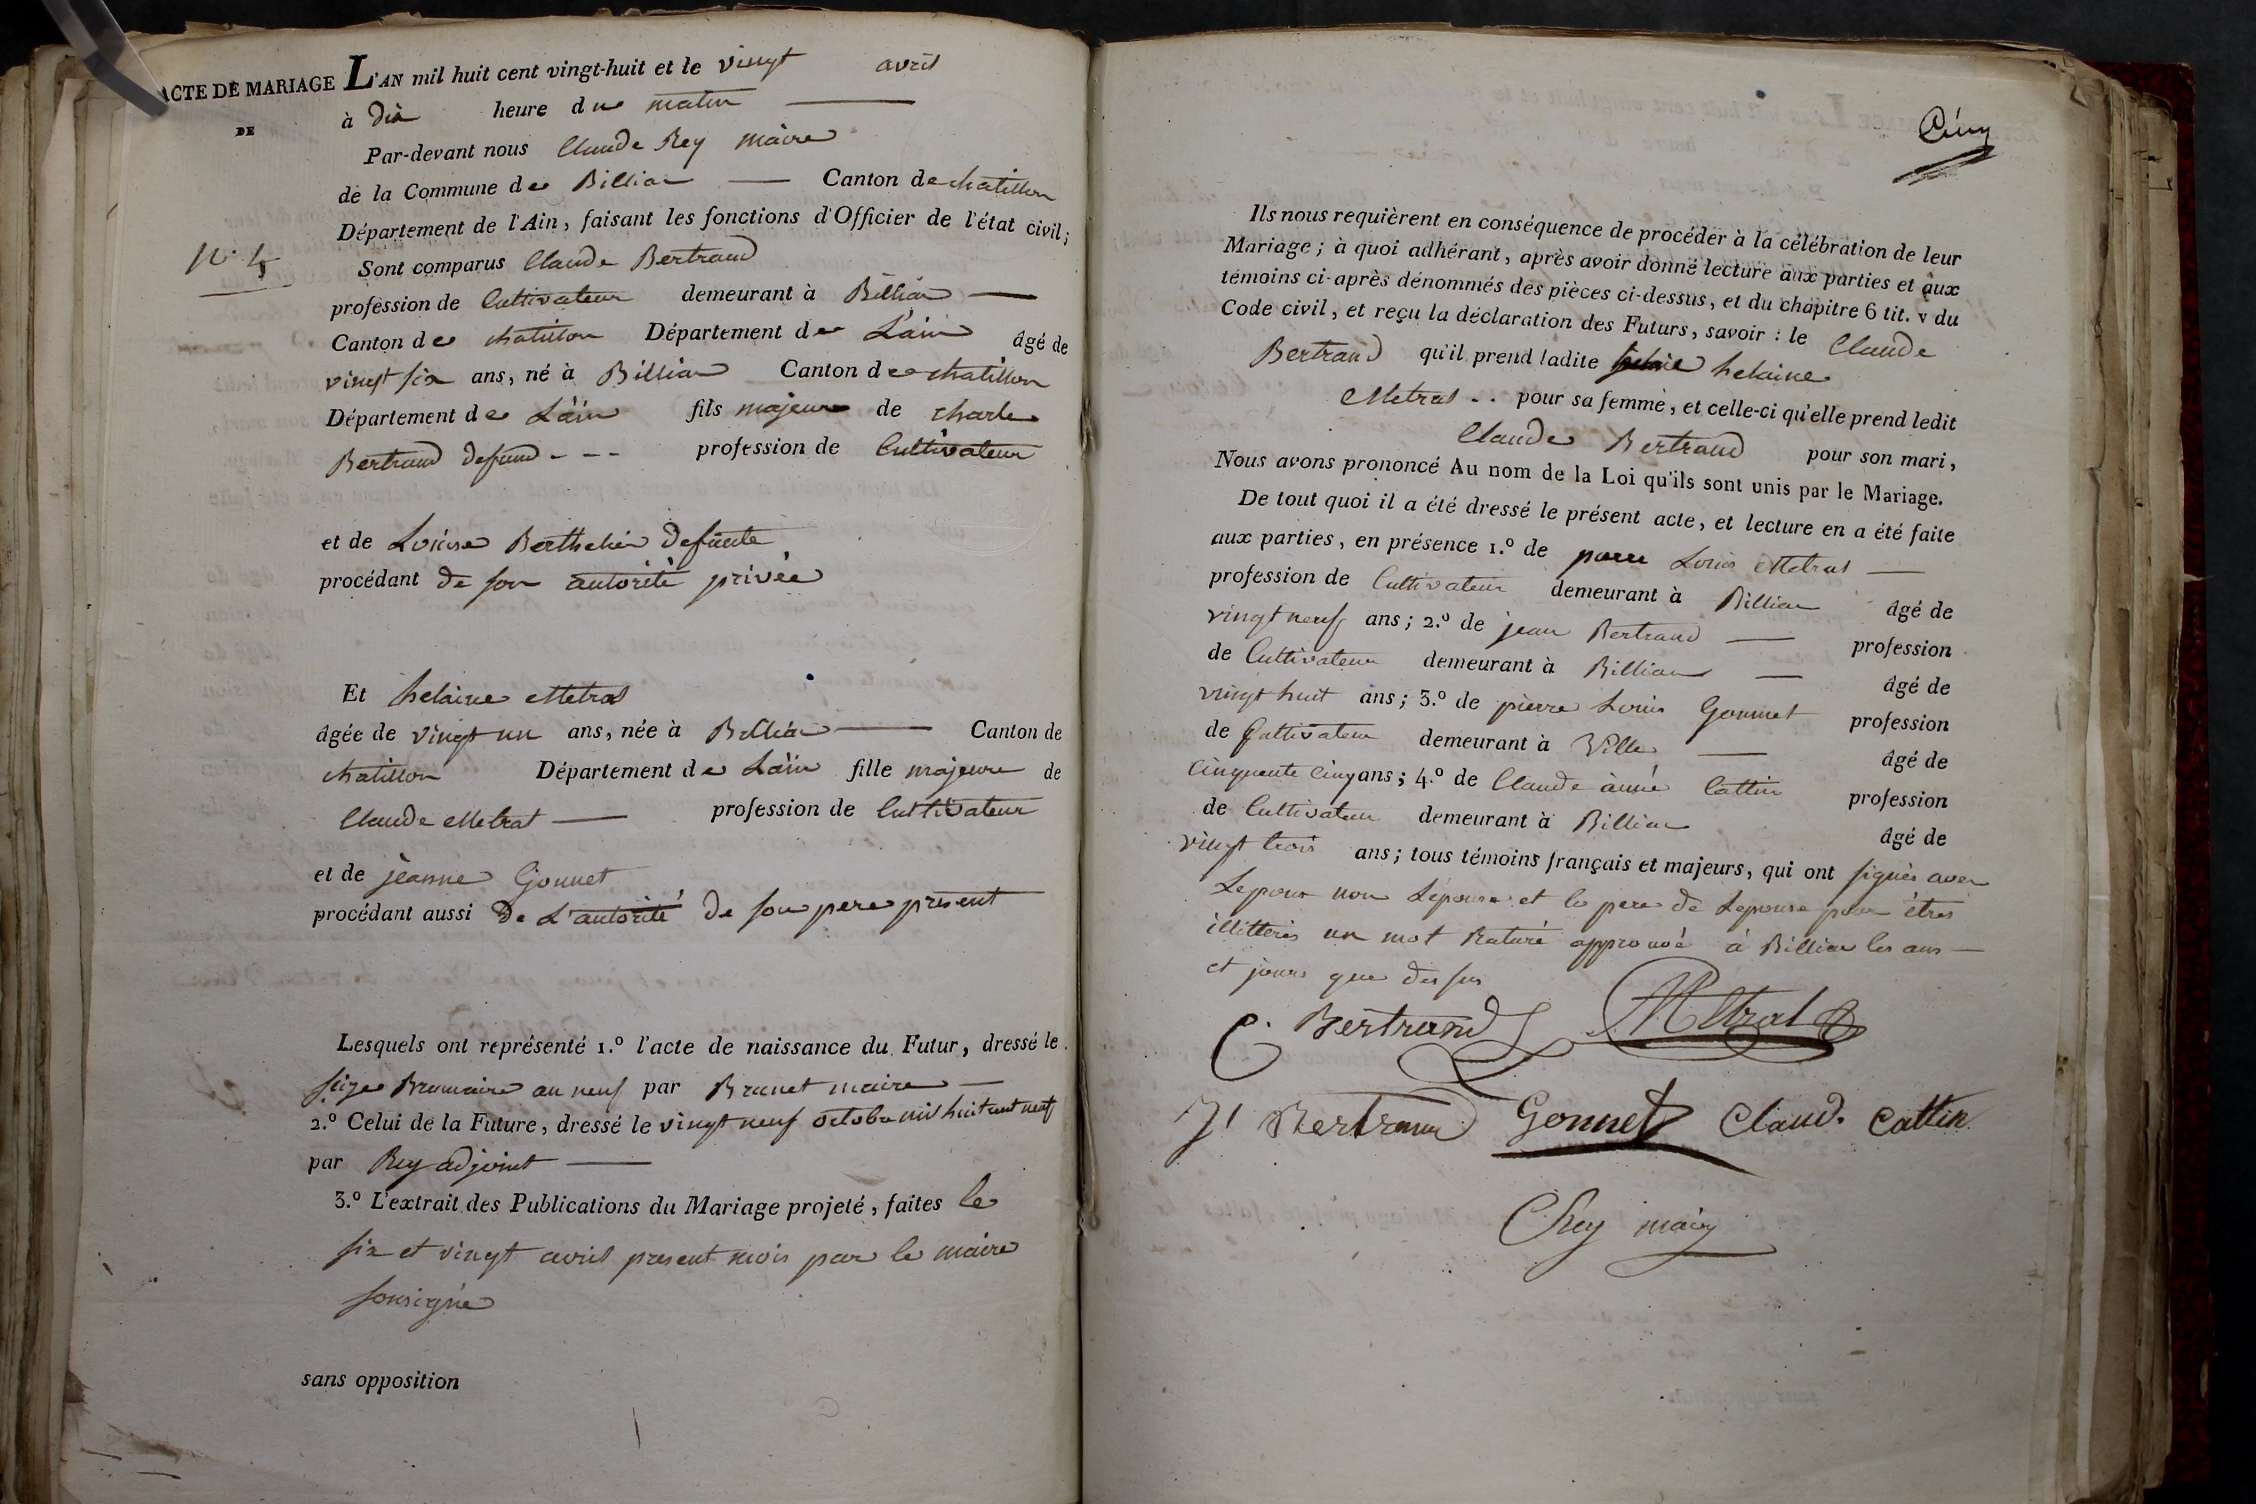 ACTE DE MARIAGE
DE
N.° 4
L'AN mil huit cent vingt-huit et le vingt avril
à dix heure du matin
Par-devant nous Claude Rey maire
de la Commune de Billiat Canton de chatillon
Département de l'Ain, faisant les fonctions d'Officier de l'état civil;
Sont comparus Claude Bertrand
profession de Cultivateur demeurant à Billiat
Canton de chatillon Département de L'ain âgé de
vingt six ans, né à Billiat Canton de chatillon
Département de L'ain fils majeur de charle
Bertrand defund - - - profession de Cultivateur
et de Louise Berthelier defunte
procédant de son autorité privée
Et helaine Metral
âgée de vingt un ans, née à Billiat Canton de
chatillon Département de L'ain fille majeure de
Claude Metral profession de Cultivateur
et de jeanne Gonnet
procédant aussi de L'autorité de son pere présent
Lesquels ont représenté 1.° l'acte de naissance du Futur, dressé le
seize Brumaire an neuf par Brunet maire
2.° Celui de la Future, dressé le vingt neuf octobre mil huit cent neuf
par Rey adjoint
3.° L'extrait des Publications du Mariage projeté, faites le
six et vingt avril present mois par le maire
sousigné
sans opposition
Cinq
Ils nous requièrent en conséquence de procéder à la célébration de leur
Mariage; à quoi adhérant, après avoir donné lecture aux parties et aux
témoins ci-après dénommés des pièces ci-dessus, et du chapitre 6 tit. v du
Code civil, et reçu la déclaration des Futurs, savoir : le Claude
Bertrand qu'il prend ladite helaine
Metral . . pour sa femme, et celle-ci qu'elle prend ledit
Claude Bertrand pour son mari,
Nous avons prononcé Au nom de la Loi qu'ils sont unis par le Mariage.
De tout quoi il a été dressé le présent acte, et lecture en a été faite
aux parties, en présence 1.° de Louis Metral
profession de Cultivateur demeurant à Billiat âgé de
vingt neuf ans; 2.° de jean Bertrand profession
de Cultivateur demeurant à Billiat âgé de
vingt huit ans; 3.° de pierre Louis Gonnet profession
de Cultivateur demeurant à Ville âgé de
Cinquente Cinq ans; 4.° de Claude aimé Cattin profession
de Cultivateur demeurant à Billiat âgé de
vingt trois ans; tous témoins français et majeurs, qui ont signés avec
Lepoux non Lépouse et le pere de Lepouse pour étres
illitterés un mot Raturé approuvé à Billiat les ans
et jours que dessus
C. Bertrand Metral
J Bertrand Gonnet Claud. Cattin
C Rey maire